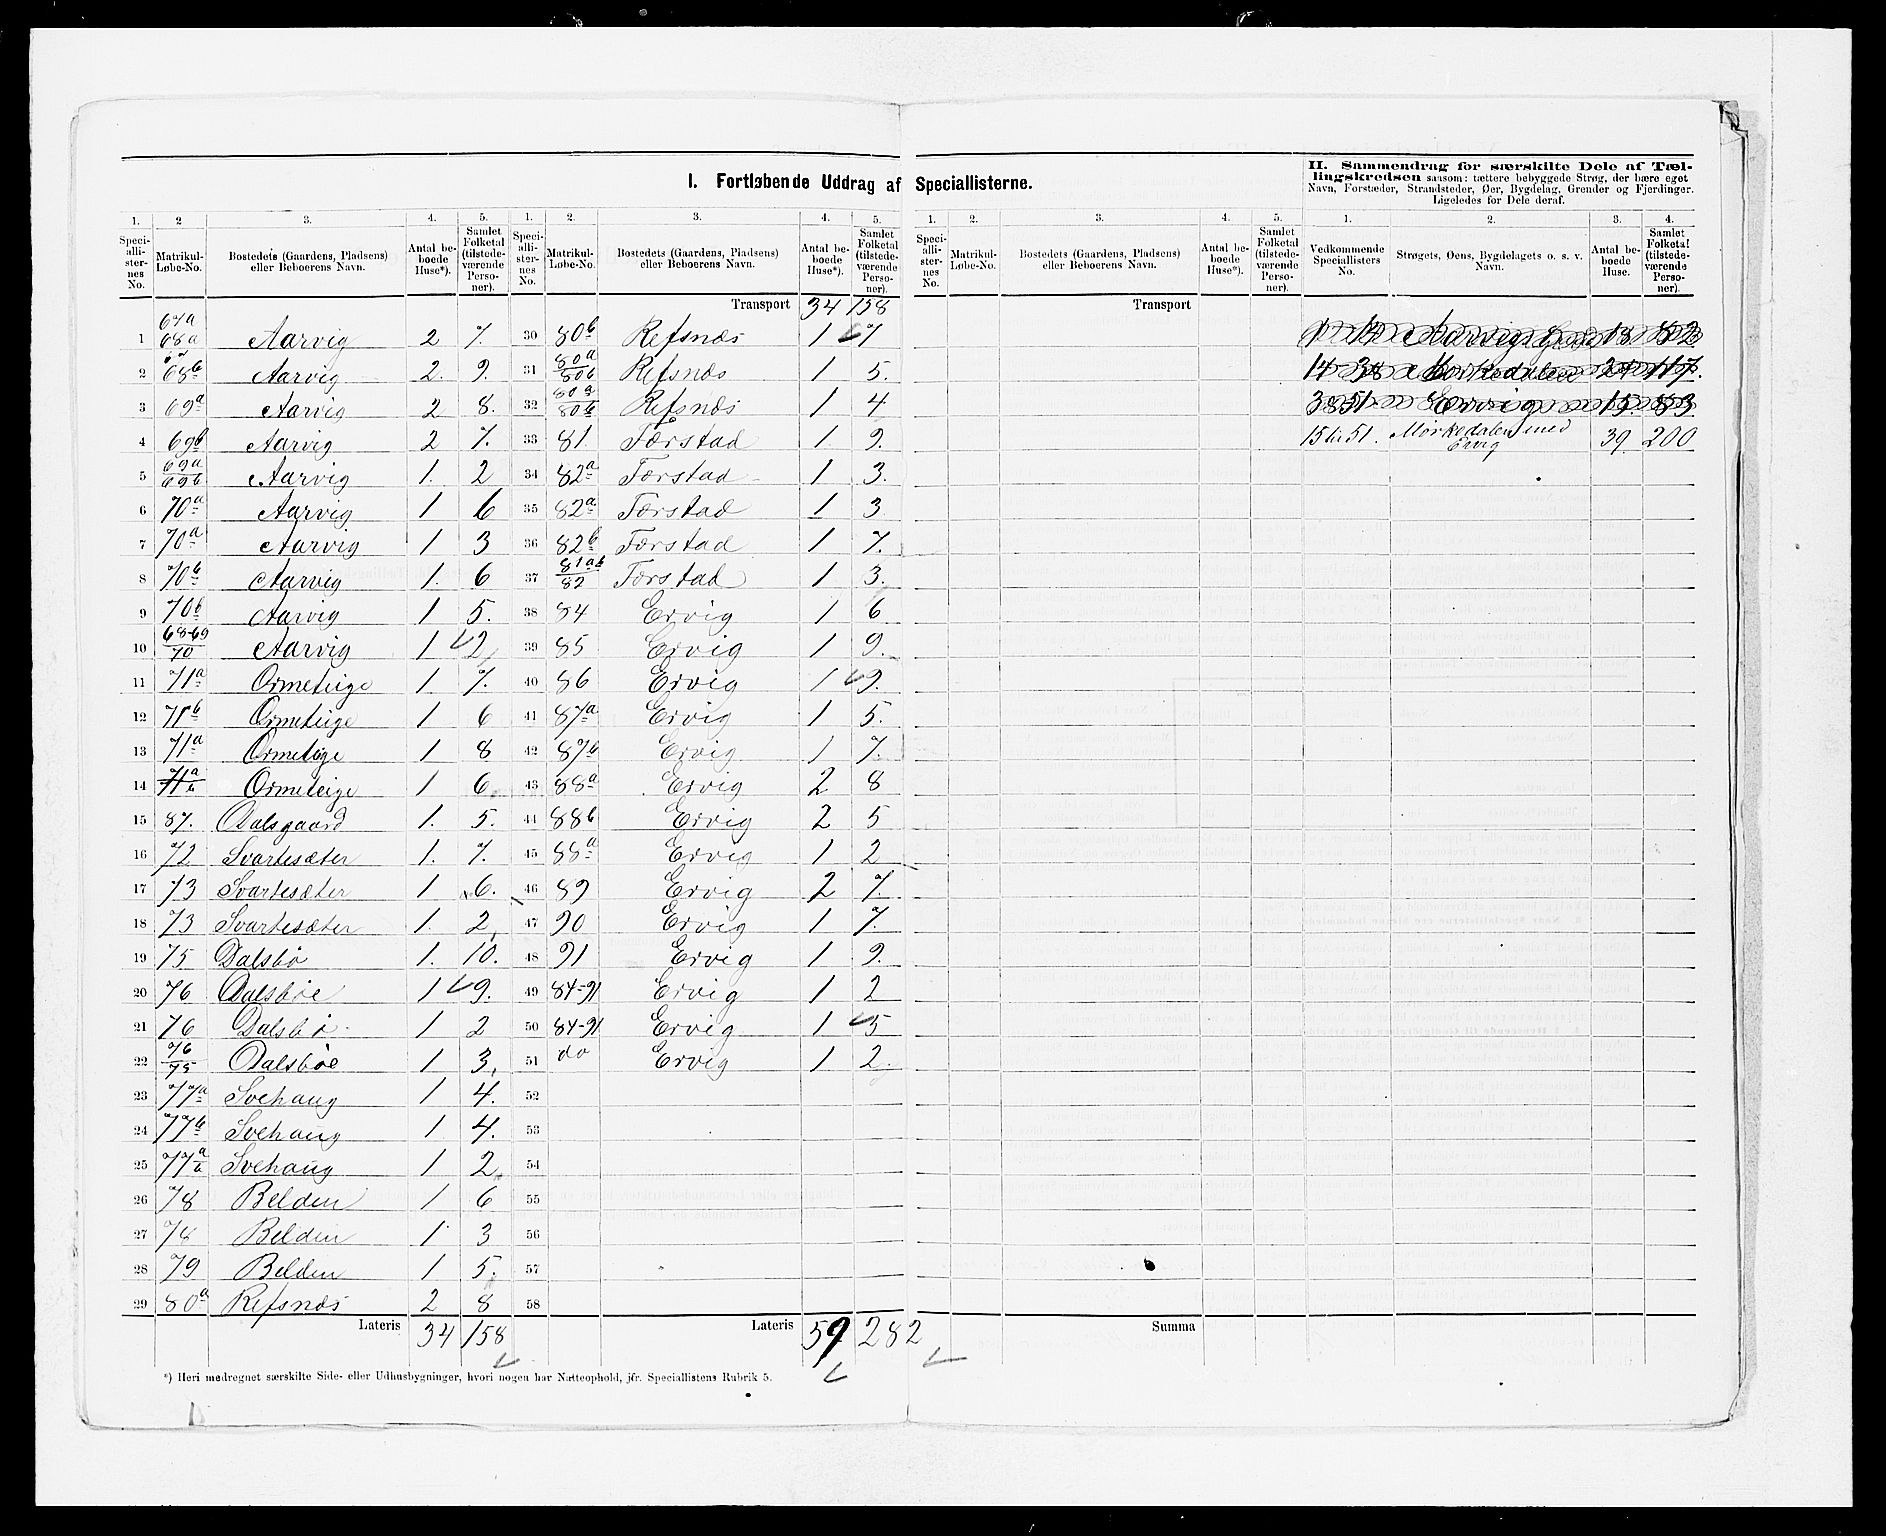 I. Fortløbende Uddrag af Speciallisterne.
II. Sammendrag for særskilte Dele af Tæl-
lingskredsen saasom: tættere bebyggede Strøg, der bære eget
Navn, Forstæder, Strandsteder, Øer, Bygdelag, Grender og Fjerdinger.
Ligeledes for Dele deraf.
1. 2 3. 4. 5. 1. 2. 3. 4. 5. 1. 2. 3. 4. 5. 1. 2. 3. 4.
Speci-alli-ster-nes No. Matrikul-Løbe-No. Bostedets (Gaardens, Pladsens) eller Beboerens Navn. Antal be-boede Huse*). Samlet Folketal (tilstede-værende Perso-ner).
Speci-alli-ster-nes No. Matrikul-Løbe-No. Bostedets (Gaardens, Pladsens) eller Beboerens Navn. Antal be-boede Huse*). Samlet Folketal (tilstede-værende Perso-ner).
Speci-alli-ster-nes No. Matrikul-Løbe-No. Bostedets (Gaardens, Pladsens) eller Beboerens Navn. Antal be-boede Huse*). Samlet Folketal (tilstede-værende Perso-ner).
Vedkommende Speciallisters No. Strøgets, Øens, Bygdelagets o. s. v. Navn. Antal be-boede Huse. Samlet Folketal (tilstede-værende Perso-ner).
1 67a 68a Aarvig 2 7.
2 68b Aarvig 2. 9.
3 69a Aarvig 2 8.
4 69b Aarvig 2 7.
5 69a 69b Aarvig 1. 2
6 70a Aarvig 1 6
7 70a Aarvig 1 3
8 70b Aarvig 1. 6
9 70b Aarvig 1 5.
10 68-69 70 Aarvig 1 2
11 71a Ormeteige 1. 7.
12 71b Ormeteige 1 6
13 71a Ormeteige 1 8
14 71a b Ormeteige 1 6
15 87. Dalsgaard 1. 5.
16 72 Svartesæter 1. 7.
17 73 Svartesæter 1 6.
18 73 Svartesæter 1. 2
19 75 Dalsbø 1. 10.
20 76 Dalsbøe 1 9.
21 76 Dalsbø 1 2
22 76 75 Dalsbøe 1 3
23 77a Svehaug 1 4.
24 77b Svehaug 1 4.
25 77a b Svehaug 1 2
26 78 Belden 1 6
27 78 Belden 1 3
28 79 Belden 1 5.
29 80a Refsnæs 2 8
Lateris 34 158
Transport 34 158
30 80b Refsnæs 1 7
31 80a 80b Refsnæs 1 5.
32 80a 80b Refsnæs 1 4
33 81 Færstad 1 9.
34 82a Færstad 1 3.
35 82a Færstad 1 3
36 82b Færstad 1 7.
37 81ab 82 Færstad 1 3.
38 84 Ervig 1 6
39 85 Ervig 1 9.
40 86 Ervig 1 9.
41 87a Ervig 1 5.
42 87b Ervig 1 7.
43 88a Ervig 2 8
44 88b Ervig 2 5
45 88a Ervig 1 2
46 89 Ervig 2 7.
47 90 Ervig 1 7.
48 91 Ervig 1 9.
49 84-91 Ervig 1 2
50 84-91 Ervig 1 5
51 do Ervig 1 2.
52
53
54
55
56
57
58
Lateris 59 282
Transport
Summa
Aarvig 18 82
14-38 Mørkedalen 24 117.
38 51 Ervig 15. 83
15 til 51. Mørkedalen med Ervig 39 200
*) Heri medregnet særskilte Side- eller Udhusbygninger, hvori nogen har Natteophold, jfr. Speciallistens Rubrik 5.